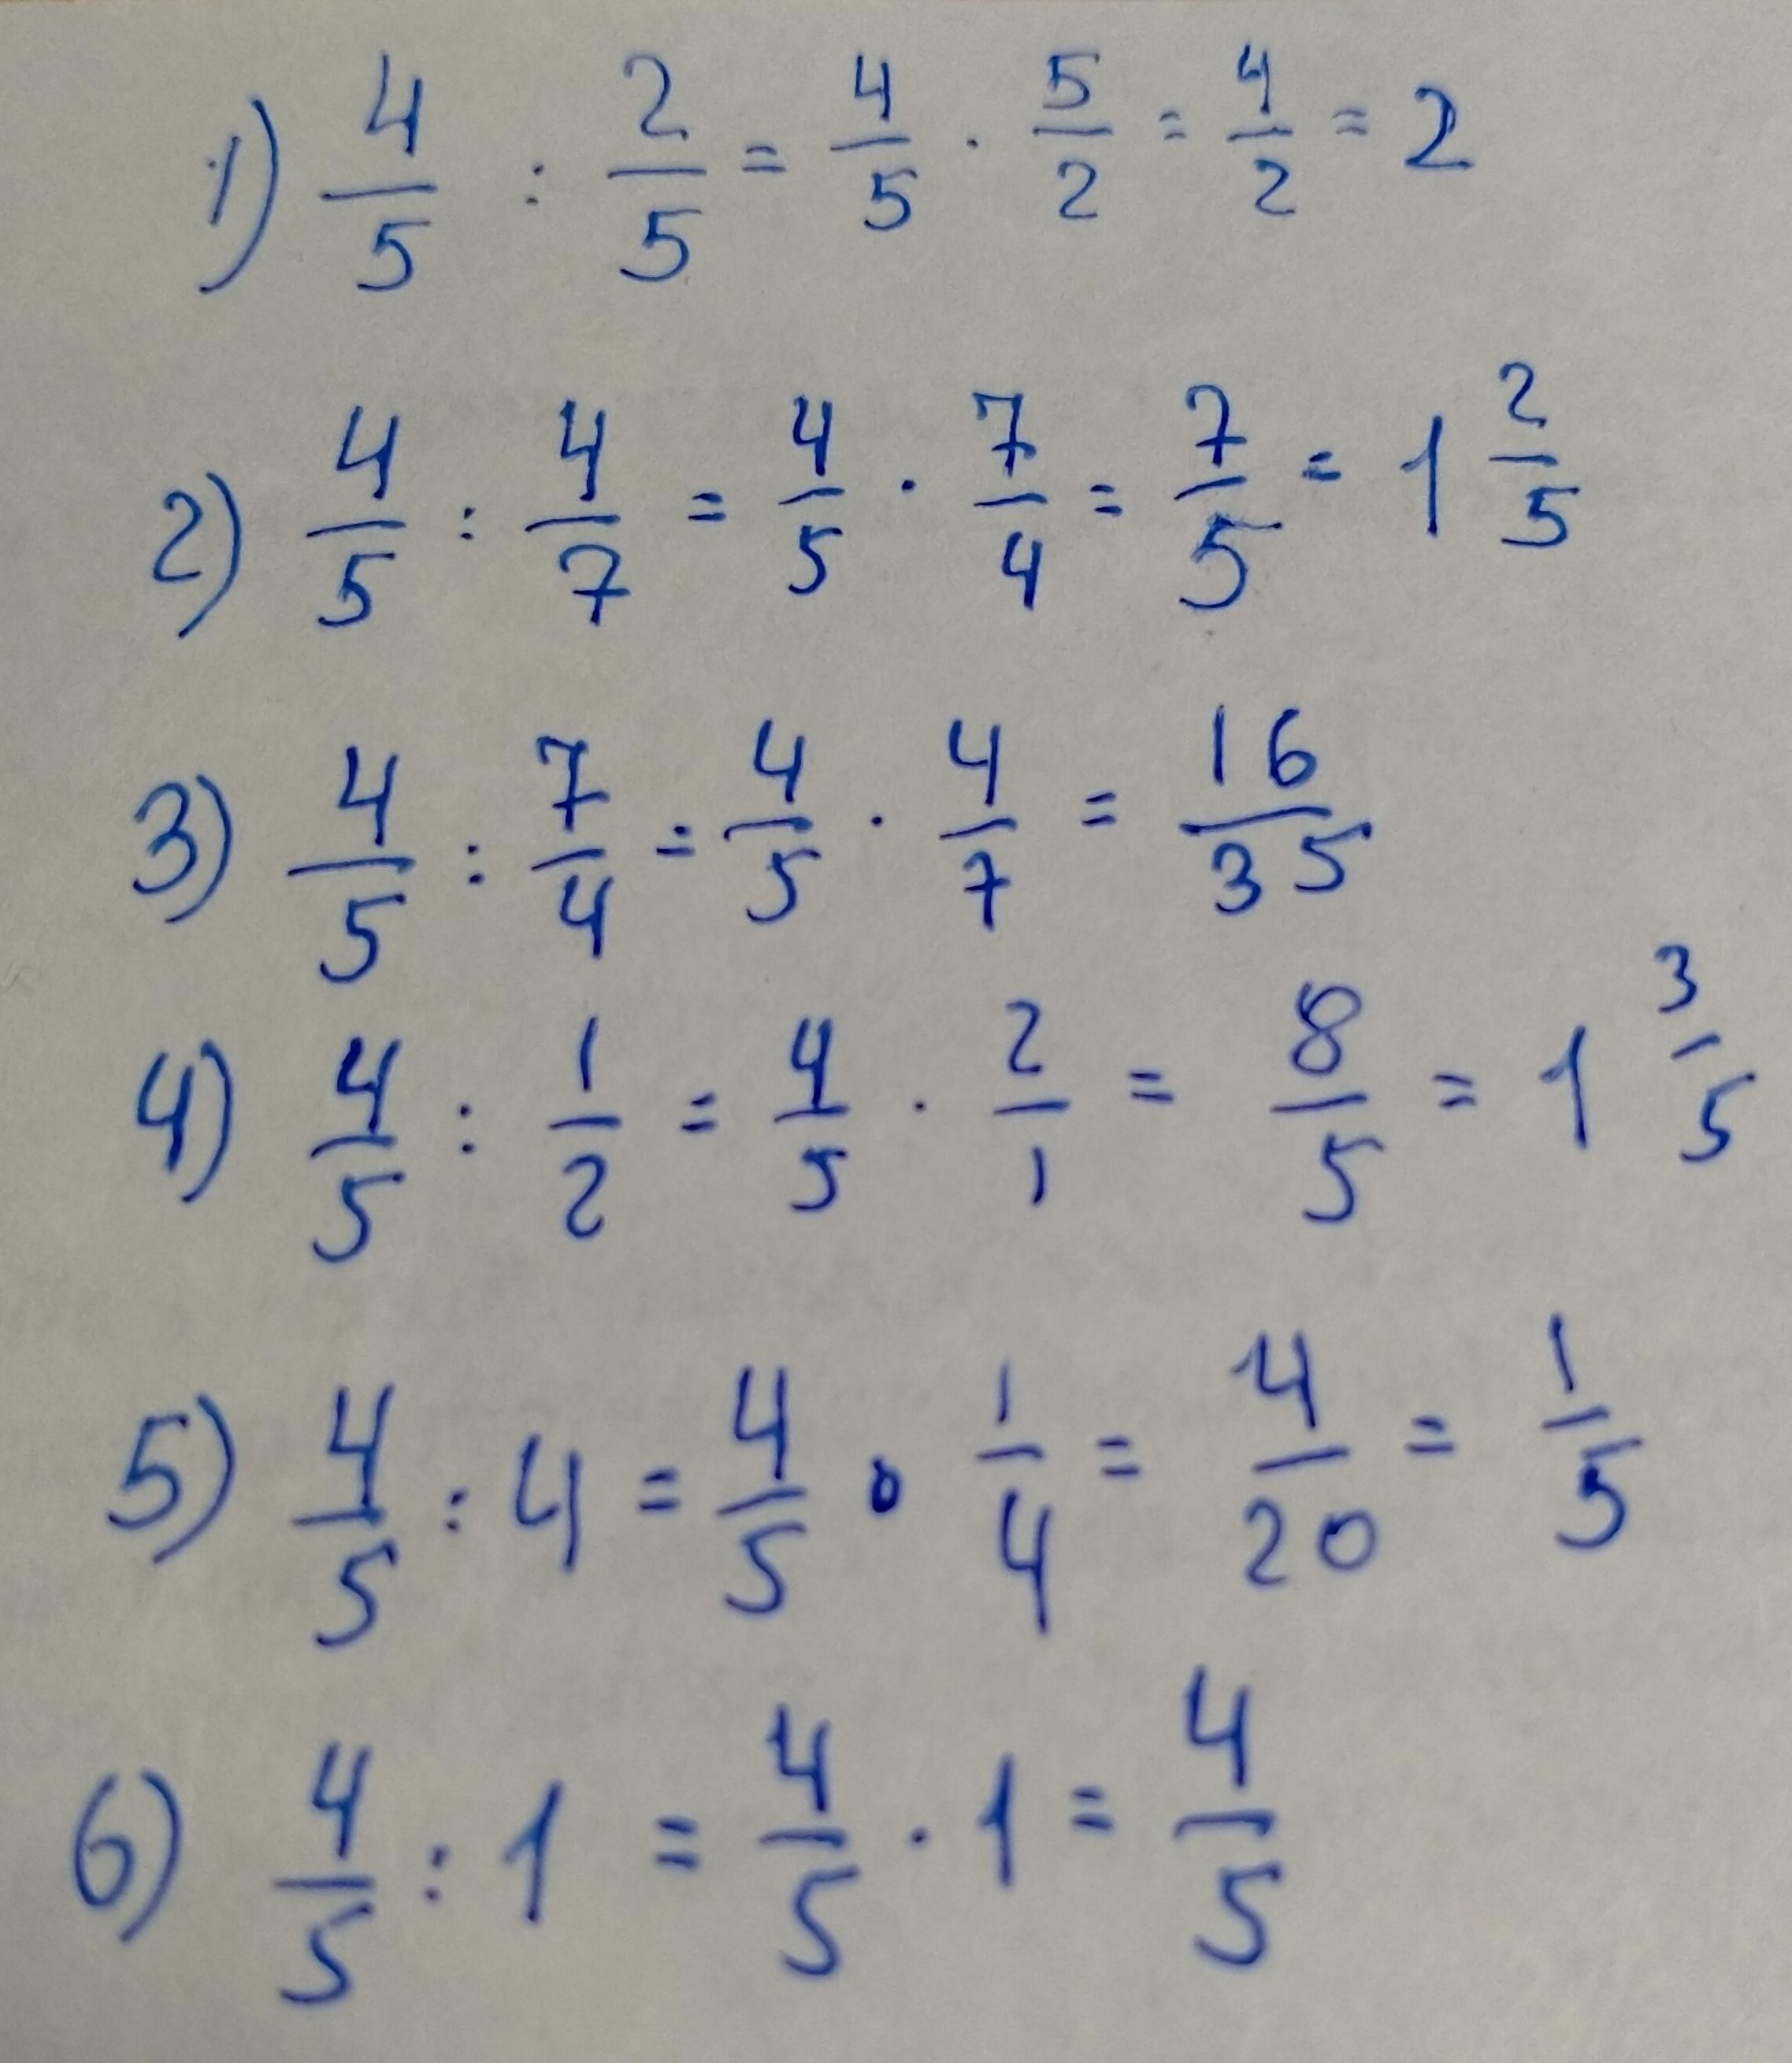 1) 4/5 : 2/5 = 4/5 · 5/2 = 4/2 = 2
2) 4/5 : 4/7 = 4/5 · 7/4 = 7/5 = 1 2/5
3) 4/5 : 7/4 = 4/5 · 4/7 = 16/35
4) 4/5 : 1/2 = 4/5 · 2/1 = 8/5 = 1 3/5
5) 4/5 : 4 = 4/5 · 1/4 = 4/20 = 1/5
6) 4/5 : 1 = 4/5 · 1 = 4/5